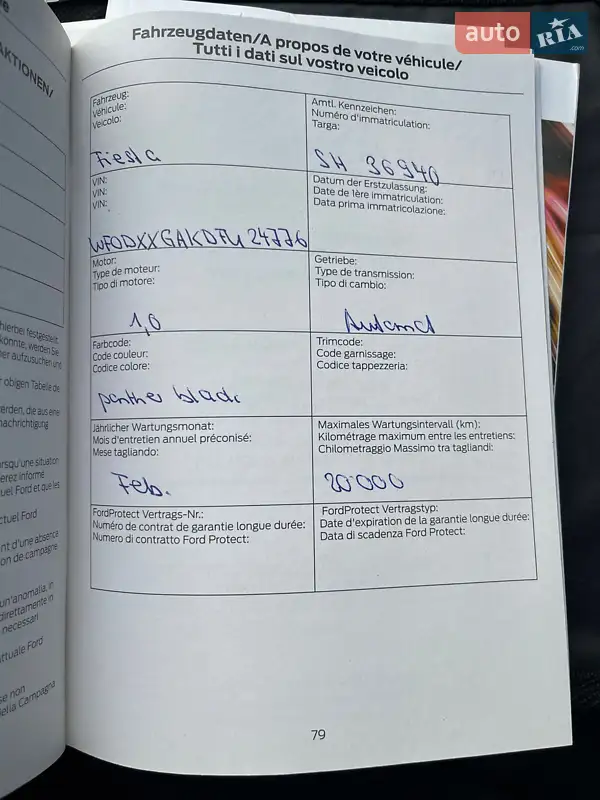 auto RIA .com
Fahrzeugdaten/A propos de votre véhicule/
Tutti i dati sul vostro veicolo
Fahrzeug:
Véhicule:
Veicolo:
Fiesta
Amtl. Kennzeichen:
Numéro d'immatriculation:
Targa:
SH 36940
VIN:
VIN:
VIN:
WF0DXXGAKDFU24776
Datum der Erstzulassung:
Date de 1ère immatriculation:
Data prima immatricolazione:
Motor:
Type de moteur:
Tipo di motore:
1,0
Getriebe:
Type de transmission:
Tipo di cambio:
Automat
Farbcode:
Code couleur:
Codice colore:
panther black
Trimcode:
Code garnissage:
Codice tappezzeria:
Jährlicher Wartungsmonat:
Mois d'entretien annuel préconisé:
Mese tagliando:
Feb.
Maximales Wartungsintervall (km):
Kilométrage maximum entre les entretiens:
Chilometraggio Massimo tra tagliandi:
20'000
FordProtect Vertrags-Nr.:
Numéro de contrat de garantie longue durée:
Numero di contratto Ford Protect:
FordProtect Vertragstyp:
Date d'expiration de la garantie longue durée:
Data di scadenza Ford Protect:
79
AKTIONEN/
hierbei festgestellt
könnte, werden Sie
her aufzusuchen und
obigen Tabelle de
erden, die aus eine
nachrichtigung
rsqu'une situation
erez informé
uel Ford et que les
ctuel Ford
nt d'une absence
on de campagne
un'anomalia, in
direttamente in
necessari
ttuale Ford
se non
della Campagna